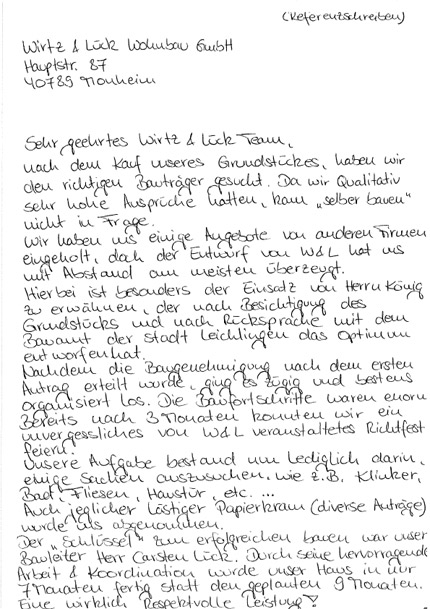 (Referenzschreiben)
Wirtz & Lück Wohnbau GmbH
Hauptstr. 87
40789 Monheim
Sehr geehrtes Wirtz & Lück Team,
nach dem Kauf unseres Grundstückes, haben wir
den richtigen Bauträger gesucht. Da wir Qualitativ
sehr hohe Ansprüche hatten, kam „selber bauen"
nicht in Frage.
Wir haben uns einige Angebote von anderen Firmen
eingeholt, doch der Entwurf von W&L hat uns
mit Abstand am meisten überzeugt.
Hierbei ist besonders der Einsatz von Herrn König
zu erwähnen, der nach Besichtigung des
Grundstücks und nach Rücksprache mit dem
Bauamt der Stadt Leichlingen das Optimum
entworfen hat.
Nachdem die Baugenehmigung nach dem ersten
Antrag erteilt wurde, ging es zügig und bestens
organisiert los. Die Baufortschritte waren enorm
Bereits nach 3 Monaten konnten wir ein
unvergessliches von W&L veranstaltetes Richtfest
feiern.
Unsere Aufgabe bestand nun lediglich darin,
einige Sachen auszusuchen, wie z.B. Klinker,
Bad, Fliesen, Haustür, etc. ...
Auch jeglicher lästiger Papierkram (diverse Anträge)
wurde uns abgenommen.
Der „Schlüssel" zum erfolgreichen bauen war unser
Bauleiter Herr Carsten Lück. Durch seine hervorragende
Arbeit & Koordination wurde unser Haus in nur
7 Monaten fertig statt den geplanten 9 Monaten.
Eine wirklich Respektvolle Leistung!